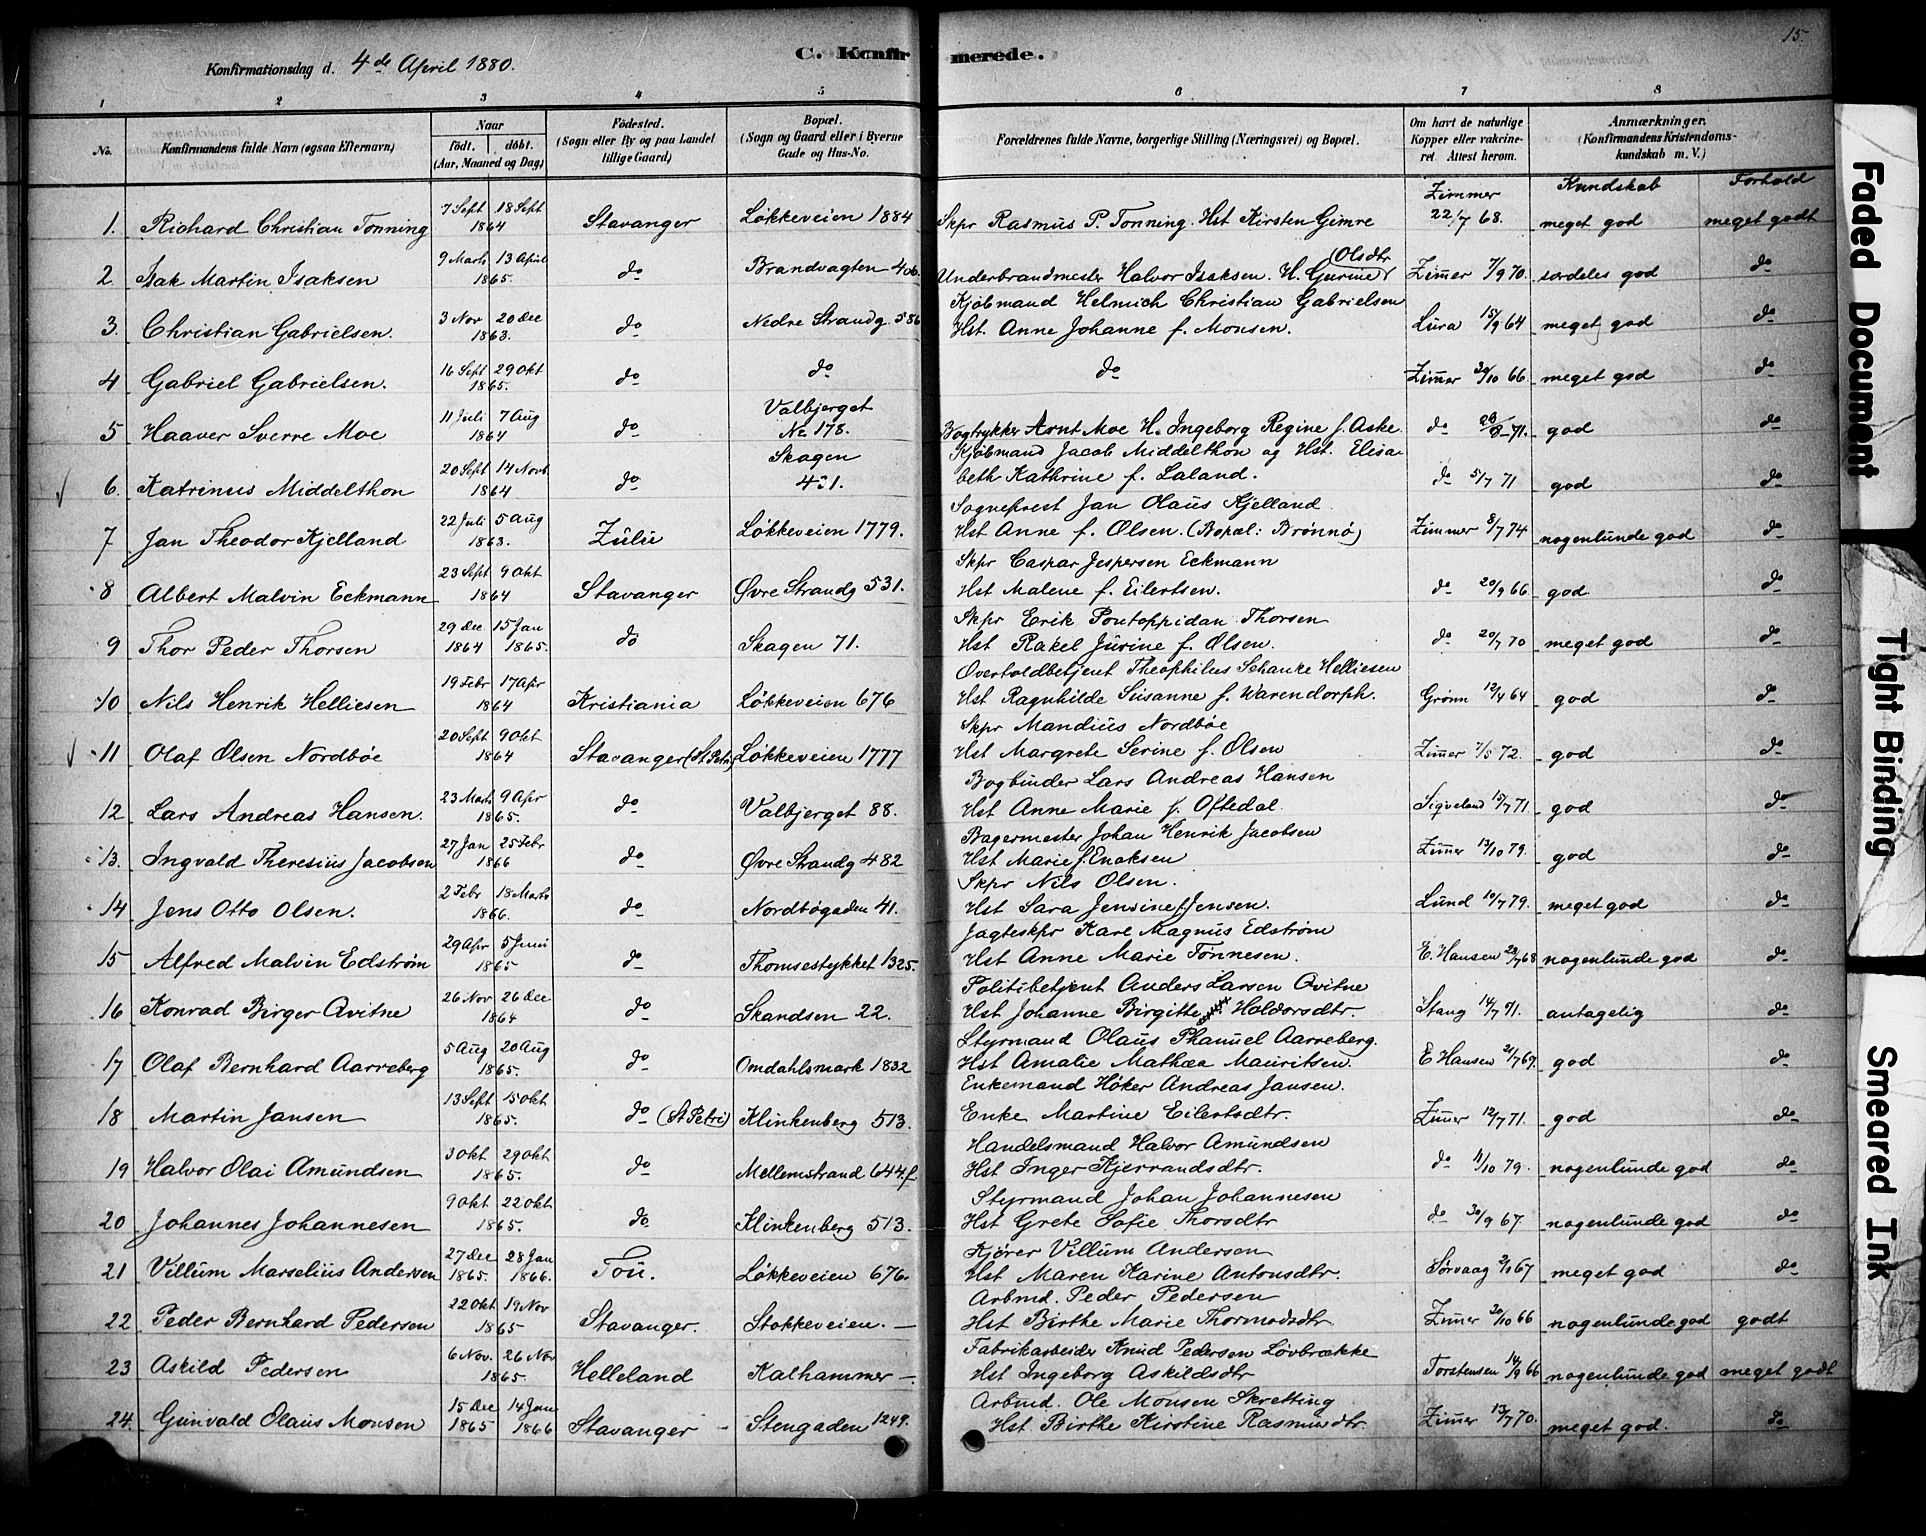 15.
C. Konfirmerede.
Konfirmationsdag d. 4de April 1880.
1 2 3 4 5 6 7 8
No. Konfirmandens fulde Navn (ogsaa Efternavn) Naar født. døbt. (Aar, Maaned og Dag) Fødested. (Sogn eller By og paa Landet tillige Gaard) Bopæl. (Sogn og Gaard eller i Byerne Gade og Hus-No. Forældrenes fulde Navne, borgerlige Stilling (Næringsvei) og Bopæl. Om havt de naturlige Kopper eller vakcineret. Attest herom. Anmærkninger. (Konfirmandens Kristendomskundskab m. V.)
Kundskab Forhold
1. Richard Christian Tonning 7 Sept 18 Sept 1864 Stavanger Løkkeveien 1884 Skpr Rasmus P. Tonning. Hst Kirsten Gimre Zimmer 22/7 68. meget god meget godt
2. Isak Martin Isaksen 9 Marts 13 April 1865. do Brandvagten 406. Underbrandmester Halvor Isaksen. H. Gurine Olsdtr Zimer 7/9 70. særdeles god do
3. Christian Gabrielsen. 3 Nov 20 Dec 1863. do Nedre Strandg. 586 Kjøbmand Helmich Christian Gabrielsen Hst. Anne Johanne f. Monsen. Lura 15/9 64 meget god do
4 Gabriel Gabrielsen. 16 Sept 29 Okt 1865. do do do Zimer 30/10 66. meget god do
5 Haaver Sverre Moe 11 Juli 7 Aug 1864 do Valbjerget No 178. Bogtrykker Arnt Moe H. Ingeborg Regine f. Aske. do 26/8 71. god do
6. Katrinus Middelthon 20 Sept 14 Novb 1864 do Skagen 431. Kjøbmand Jacob Middelthon og Hst. Elisabeth Kathrine f. Laland. do 5/7 71 god do
7 Jan Theodor Kjelland 22 Juli 5 Aug 1863. Zulu Løkkeveien 1779. Sogneprest Jan Olaus Kjelland Hst Anne f. Olsen. (Bopæl: Brønnø) Zimmer 8/7 74 nogenlunde god do
8 Albert Malvin Eckmann 23 Sept 9 Okt 1864 Stavanger Øvre Strandg 531. Skpr Caspar Jespersen Eckmann Hst Malene f. Eilertsen. do 20/9 66 god do
9 Thor Peder Thorsen 29 Dec 15 Jan 1864 1865. do Skagen 71. Skpr Erik Pontoppidan Thorsen Hst Rakel Jurine f. Olsen. do 20/7 70 meget god do
10 Nils Henrik Helliesen 19 Febr 17 Apr 1864 Kristiania Løkkeveien 676 Overtoldbetjent Theophilus Schanke Helliesen Hst Ragnhilde Susanne f. Warendorph. Grønn 12/4 64 god do
11 Olaf Olsen Nordbøe 20 Sept 9 Okt 1864 Stavanger (St Petri) Løkkeveien 1777 Skpr Mandius Nordbøe Hst Margrete Serine f. Olsen Zimer 7/5 72. god do
12 Lars Andreas Hansen. 23 Marts 9 Apr 1865. do Valbjerget 88. Bogbinder Lars Andreas Hansen Hst Anne Marie f. Oftedal. Sigveland 15/7 71. god do
13. Ingvald Theresius Jacobsen 27 Jan 25 Febr 1866 do Øvre Strandg 482 Bagermester Johan Henrik Jacobsen Hst Marie f Enoksen Zimer 13/10 79. god do
14 Jens Otto Olsen. 2 Febr 18 Marts 1866. do Nordbøgaden 41. Skpr Nils Olsen. Hst Sara Jensine f Jensen. Lund 10/7 79. meget god do
15 Alfred Malvin Edstrøm 29 Apr 5 Juni 1865 do Thomsestykket 1325. Jagteskpr Karl Magnus Edstrøm Hst Anne Marie Tønnesen. E. Hansen 23/7 68 nogenlunde god do
16 Konrad Birger Qvitne 26 Nov 26 Dec 1864 do Skandsen 22. Politibetjent Anders Larsen Qvitne Hst Johanne Birgitte Haldorsdtr. Stang 14/7 71. antagelig do
17 Olaf Bernhard Aarreberg 5 Aug 20 Aug 1865. do Omdahlsmark 1832 Styrmand Olaus Phanuel Aarreberg. Hst Amalie Mathea Mauritsen. E Hansen 21/7 69. god do
18 Martin Jansen 13 Sept 15 Okt 1865. do (St Petri) Klinkenberg 513. Enkemand Høker Andreas Jansen. Enke Martine Eilertsdtr. Zimer 12/7 71. god do
19 Halvor Olai Amundsen 3 Okt 29 Okt 1865. do Mellemstrand 644 f Handelsmand Halvor Amundsen Hst Inger Kjerrandsdtr. do 11/10 79. nogenlunde god do
20 Johannes Johannesen 9 Okt 22 Okt 1865. do Klinkenberg 513. Styrmand Johan Johannesen Hst Grete Sofie Thorsdtr do 30/9 67. nogenlunde god do
21 Villum Marselius Andersen 27 Dec 28 Jan 1865. 1866. Tou. Løkkeveien 676. Kjører Villum Andersen Hst Maren Karine Antonsdtr. Sørvaag 2/10 67 meget god do
22 Peder Bernhard Pedersen 22 Okt 19 Nov 1865 Stavanger. Stokkeveien. — Arbmd. Peder Pedersen Hst Birthe Marie Thormodsdtr Zimer 30/10 66 nogenlunde god godt
23 Askild Pedersen 6 Nov. 26 Nov 1865. Helleland Kalhammer — Fabrikarbeider Knud Pedersen Løvbrække Hst Ingeborg Askildsdtr Torstensen 14/9 66 nogenlunde god meget godt
24. Gunvald Olaus Monsen 15 Dec 14 Jan 1865 1866 Stavanger — Stengaden 1249. Arbmd. Ole Monsen Skretting Hst Birthe Kirstine Rasmusdtr. Zimer 13/7 70. meget god. do
Faded Document
Tight Binding
Smeared Ink